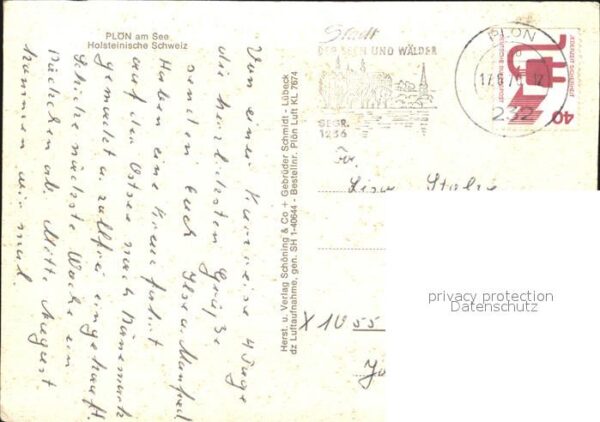 PLÖN am See
Holsteinische Schweiz
Von einer Kurzreise 4 Tage
die herzlichsten Grüße
senden Euch Ilse u. Manfred
Haben eine Kreuzfahrt
auf der Ostsee nach Dänemark
gemacht u. zollfrei eingekauft.
Schicke nächste Woche ein
Päckchen ab. Mitte August
kommen wir mal.
Herst. u. Verlag Schöning & Co + Gebrüder Schmidt - Lübeck
dz Luftaufnahme, gen. SH 1-40644 - Bestellnr. Plön Luft KL 7674
Stadt
DER SEEN UND WÄLDER
GEGR.
1236
PLÖN
232
DEUTSCHE BUNDESPOST
JEDERZEIT SICHERHEIT
40
X 1055
privacy protection
Datenschutz